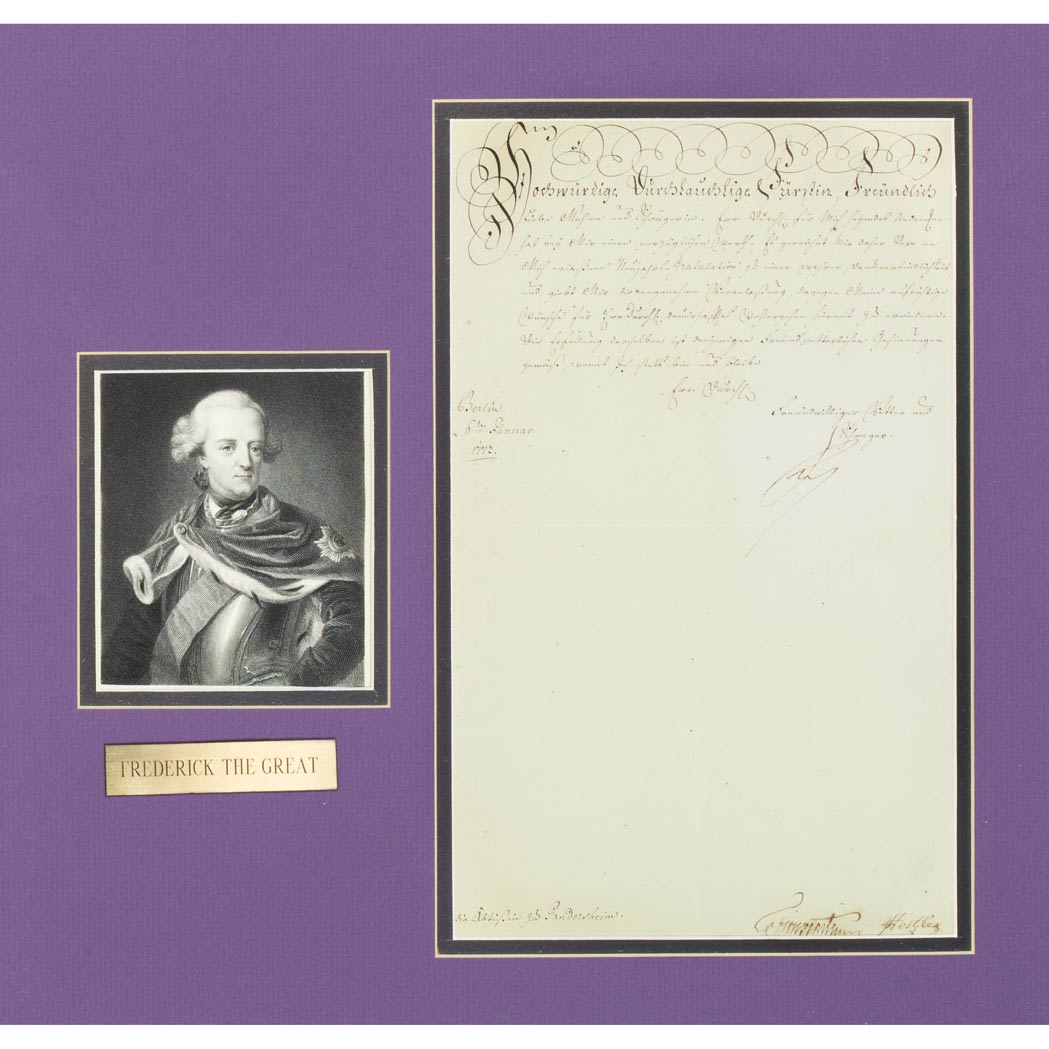 Hochwürdige Durchlauchtige Fürstin, Freündlich
Liebe Muhme und Schwägerin. Ew. Durchl. für Mich hegendes Andenken
hat bey Mir einen vorzüglichen Werth. Es gereichet Mir daher Der an
Mich erlaßene Neujahrs-Gratulation zu einer wahren Danckverbindlichkeit
und giebt Mir die angenehme Veranlaßung, dagegen Meine aufrichtige
Wünsche für Ew. Durchl. dauerhafftes Wohlergehen hiermit zu erwiedern.
Die Erfüllung derselben ist denjenigen Freündvetterlichen Gesinnungen
gemäß, womit Ich stets bin und bleibe
Ew. Durchl.
Berlin
6ten Januar
1772.
Freündwilliger Vetter und
Schwager.
die Äbtißin zu Gandersheim.
Finckenstein Hertzberg
FREDERICK THE GREAT